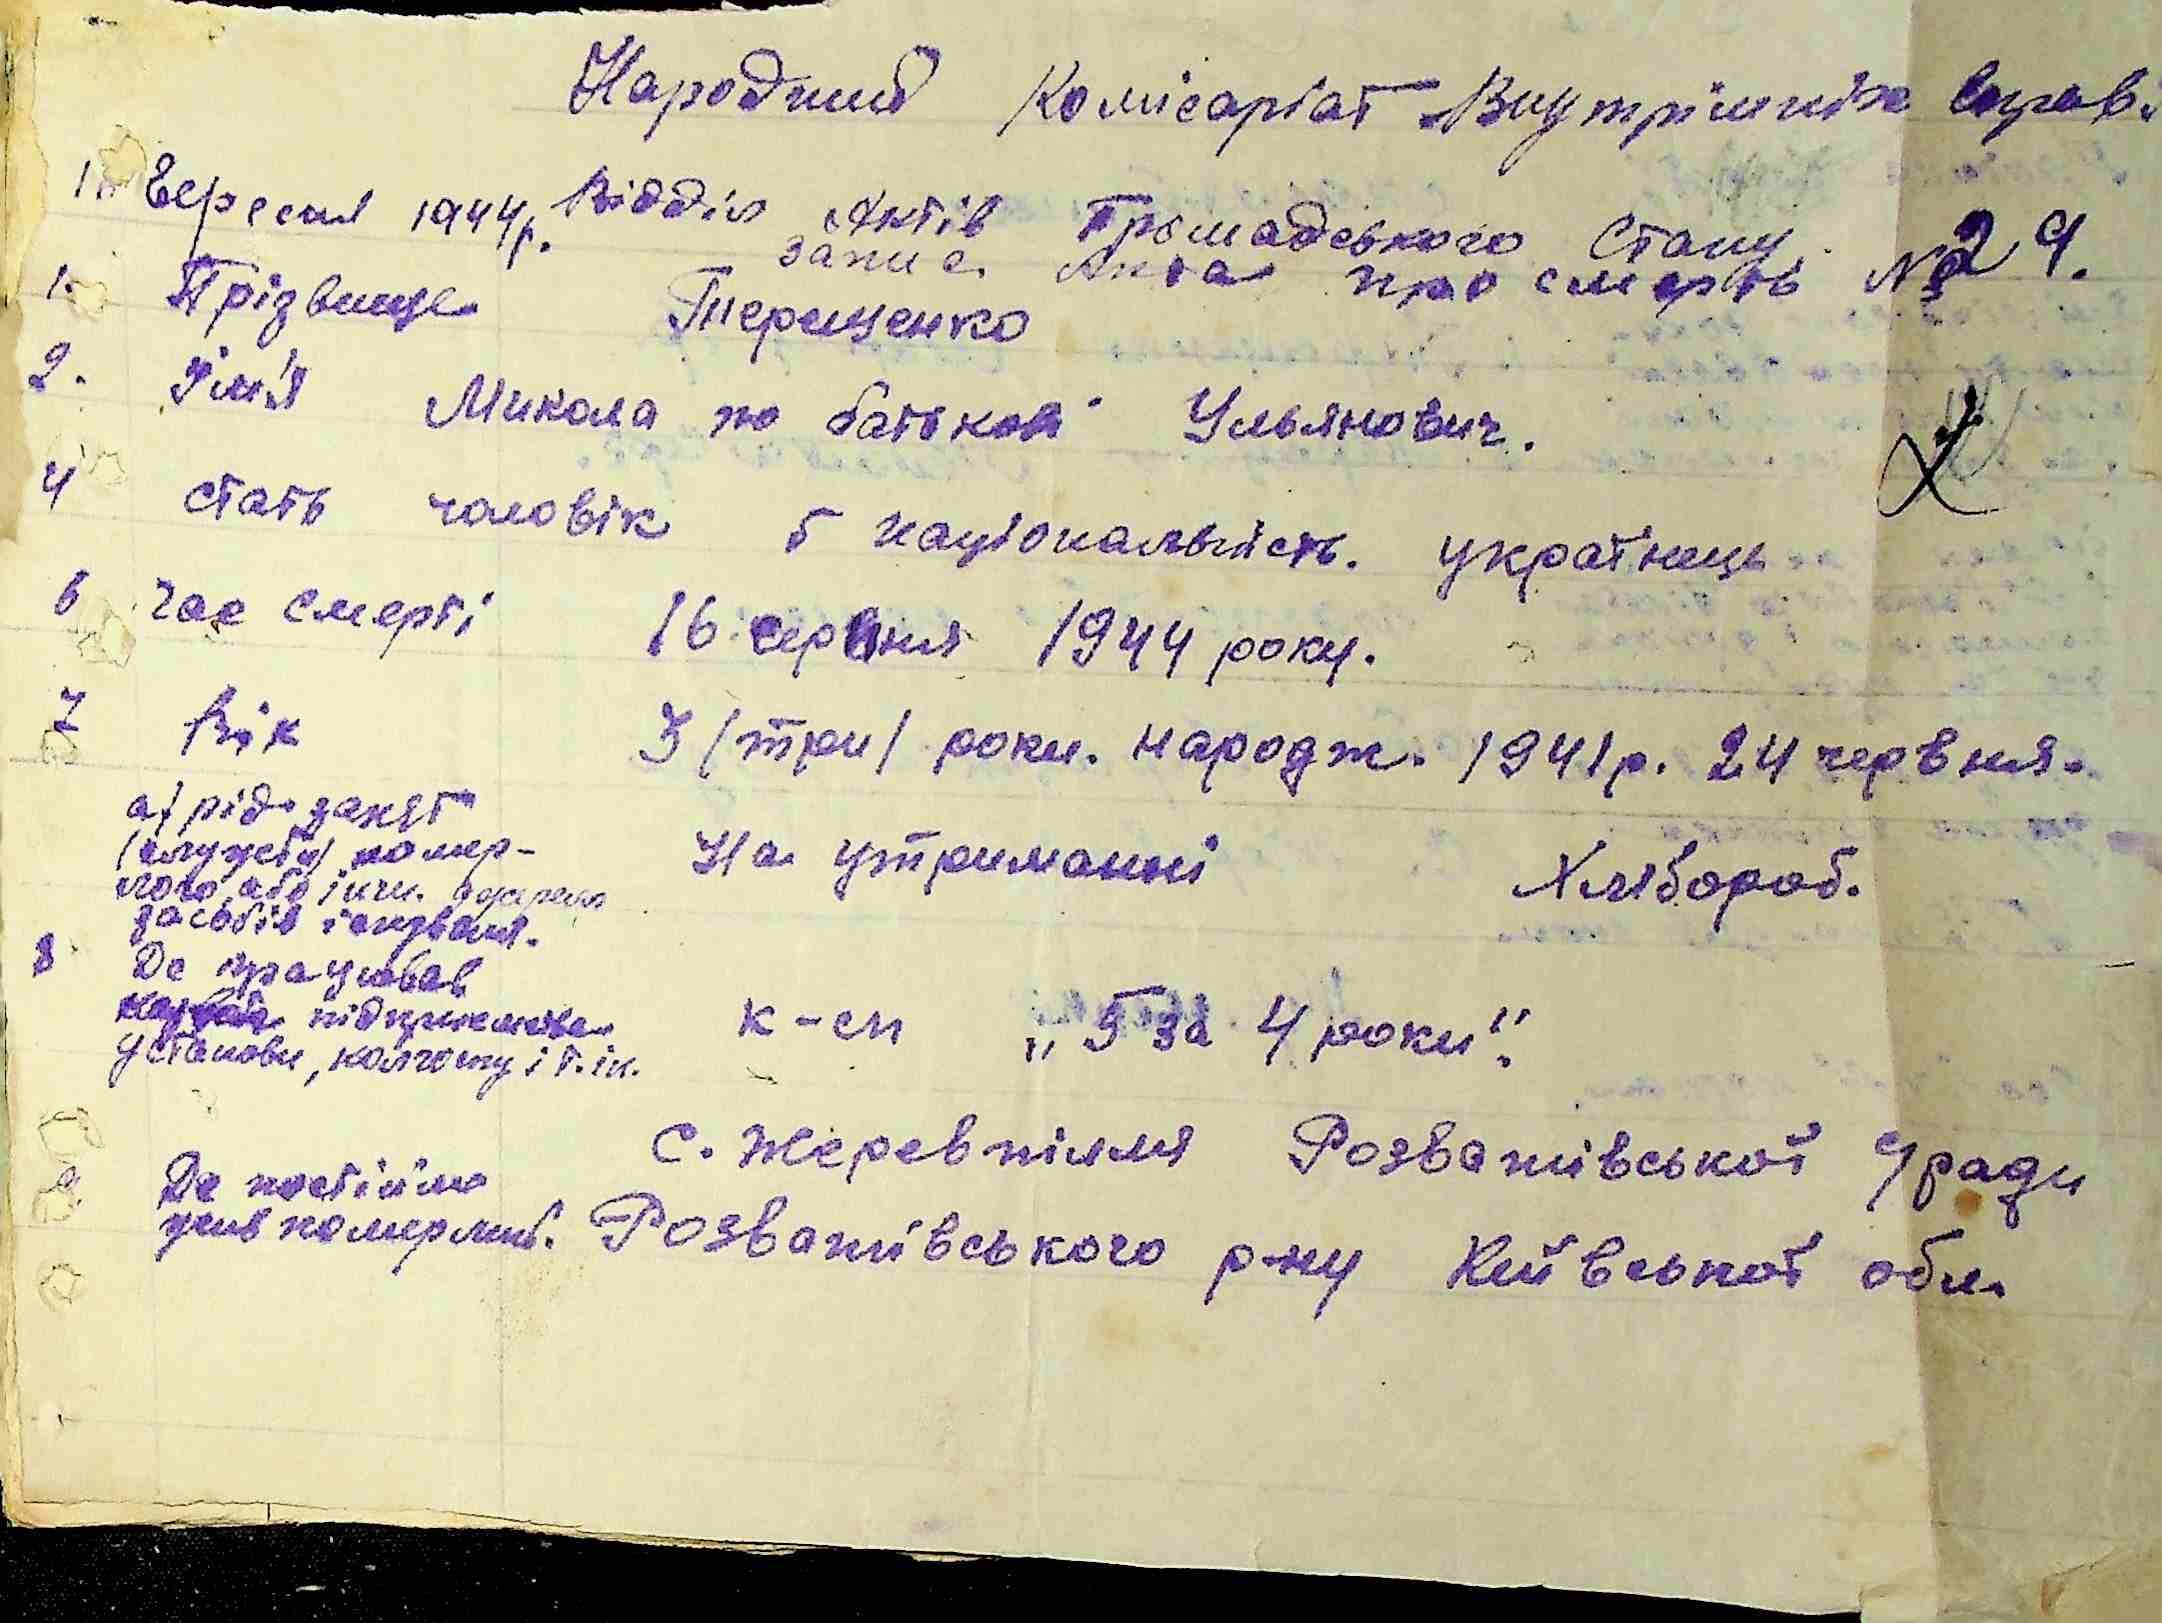 Народний Комісаріат Внутрішніх Справ
1. Вересня 1944р. Відділ Актів Громадського Стану.
запис Акта про смерть № 29.
1. Прізвище Терещенко
2. Ім'я Микола по батькові Ульянович.
4 стать чоловік 5 національність. українець
6 час смерті 16 серпня 1944 року.
7 Вік 3 /три/ роки. народж. 1941р. 24 червня.
а/ рід занят
/служби/ помер-
лого, або інш. джерел На утриманні Хлібороб.
засобів існування.
8 Де працював
назва підприємства к-сп „5 за 4 роки".
установи, колгоспу і т. ін.
с. Жеревпілля Розважівської с/ради
9 Де постійно
жив померлий. Розважівського р-ну Київської обл.